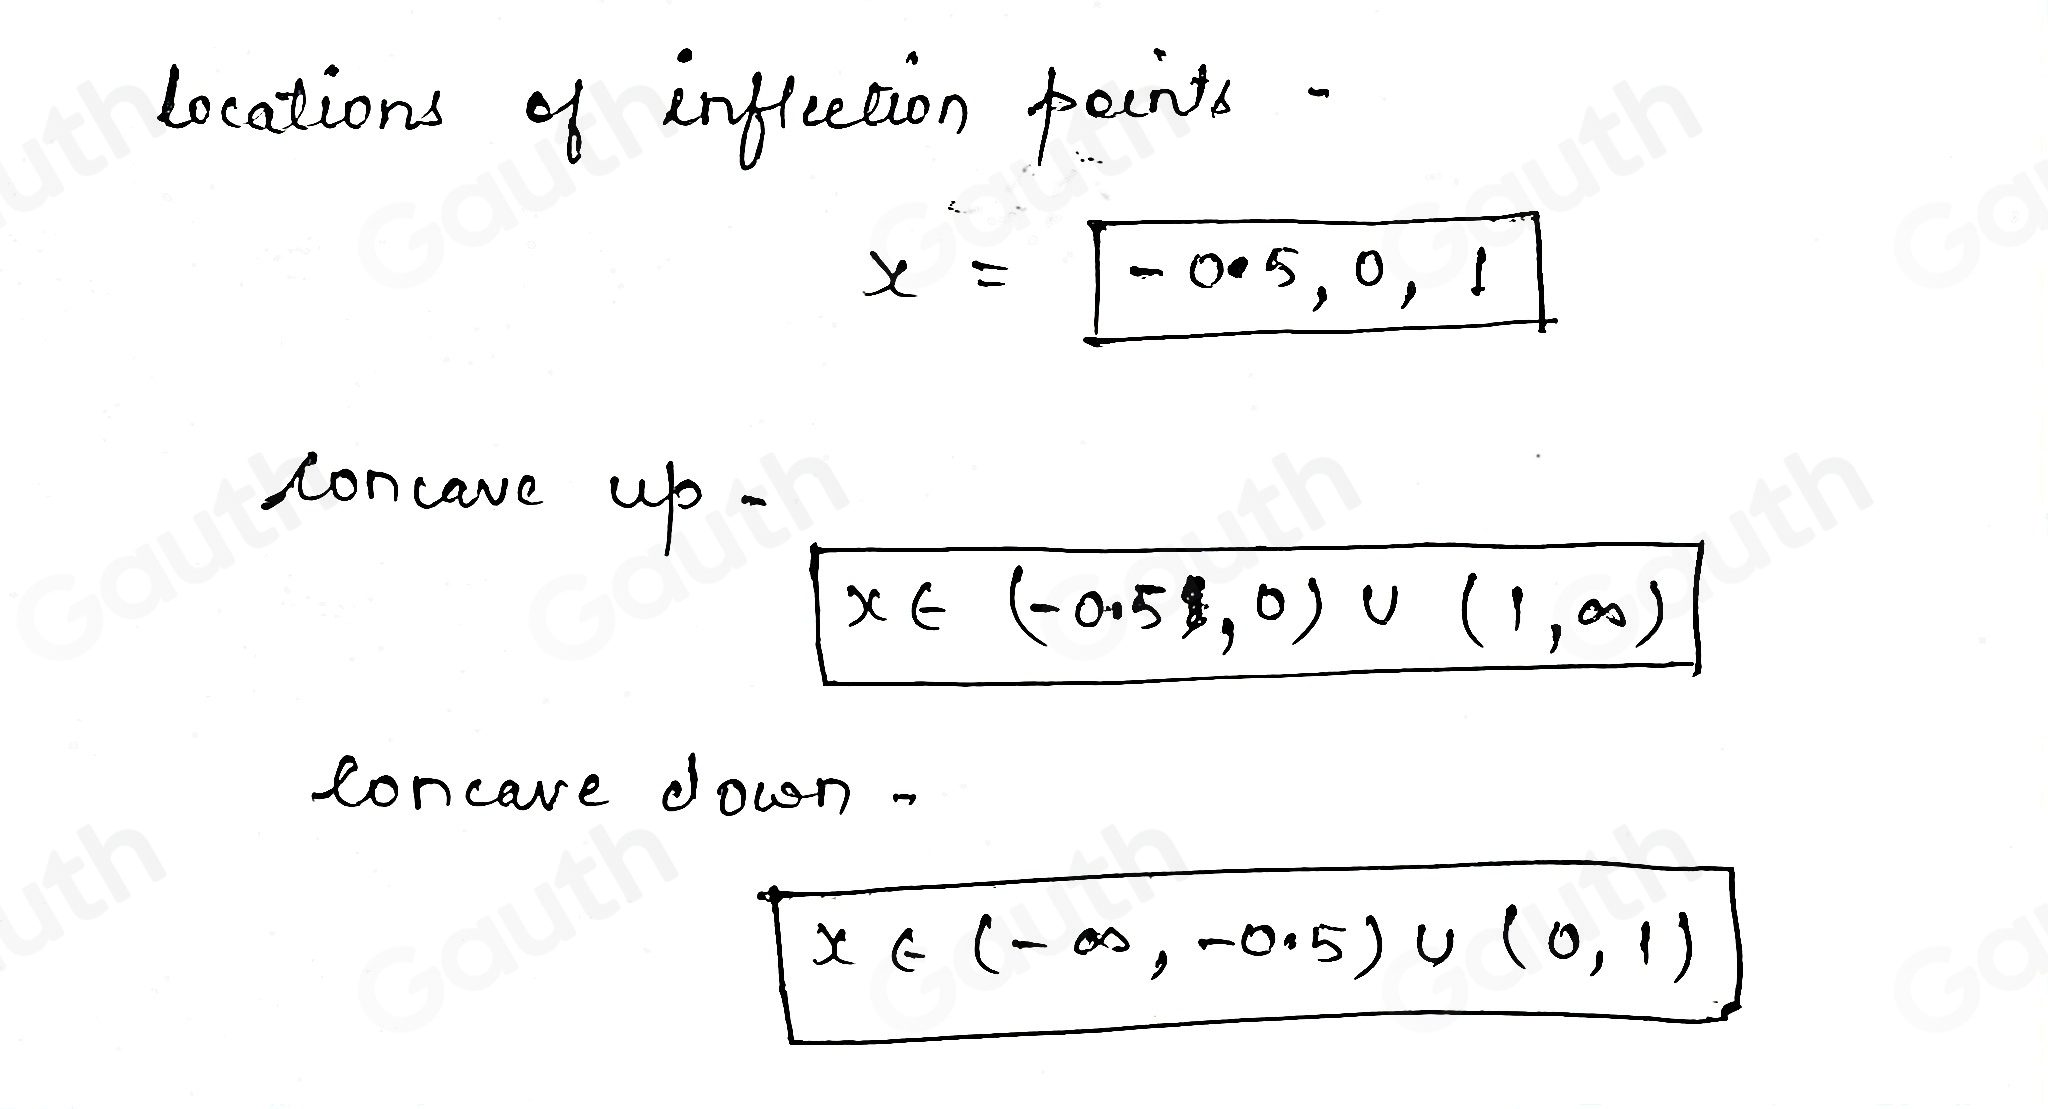 locations of inflection points -
x = -0.5, 0, 1
concave up -
x ∈ (-0.5, 0) ∪ (1, ∞)
concave down -
x ∈ (-∞, -0.5) ∪ (0, 1)